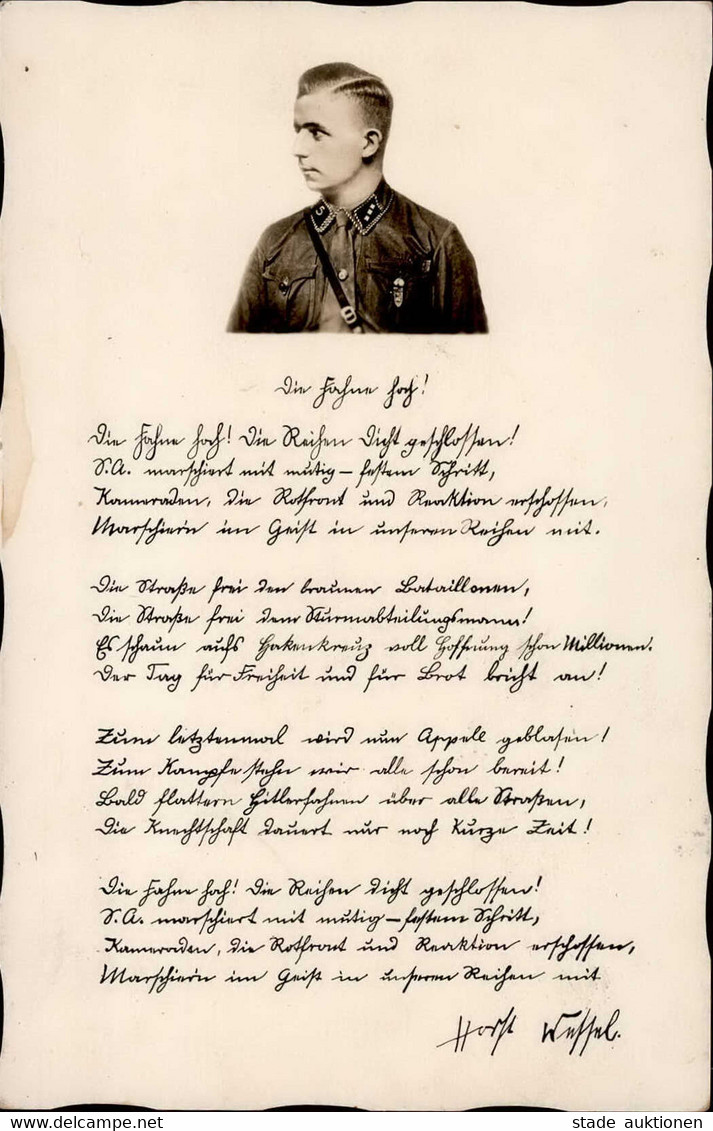 Die Fahne hoch!
Die Fahne hoch! Die Reihen dicht geschlossen!
S.A. marschiert mit mutig-festem Schritt,
Kameraden, die Rotfront und Reaktion erschossen,
Marschiern im Geist in unseren Reihen mit.
Die Straße frei den braunen Bataillonen,
Die Straße frei dem Sturmabteilungsmann!
Es schaun aufs Hakenkreuz voll Hoffnung schon Millionen.
Der Tag für Freiheit und für Brot bricht an!
Zum letztenmal wird nun Appell geblasen!
Zum Kampfe stehn wir alle schon bereit!
Bald flattern Hitlerfahnen über alle Straßen,
Die Knechtschaft dauert nur noch kurze Zeit!
Die Fahne hoch! Die Reihen dicht geschlossen!
S.A. marschiert mit mutig-festem Schritt,
Kameraden, die Rotfront und Reaktion erschossen,
Marschiern im Geist in unseren Reihen mit
Horst Wessel.
stade auktionen